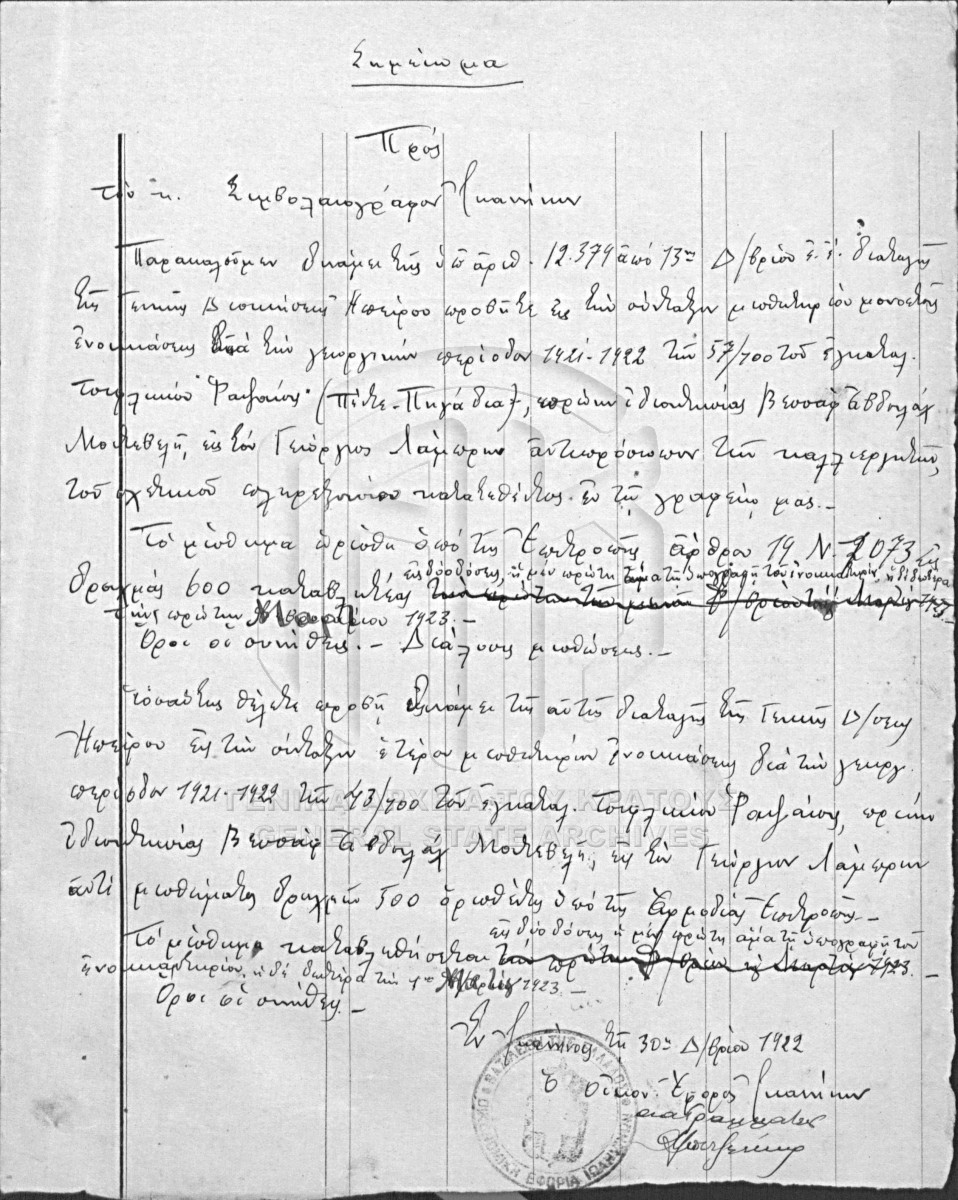 Σημείωμα
Πρὸς
τὸν κ. Συμβολαιογράφον Ἰωαννίνων
Παρακαλοῦμεν δυνάμει τῆς ὑπ' ἀριθ. 12.379 ἀπὸ 13ης Δ/βρίου ἐ.ἔ. διαταγῆς
τῆς Γενικῆς Διοικήσεως Ἠπείρου προβῆτε εἰς τὴν σύνταξιν μισθωτηρίου μονοετοῦς
ἐνοικιάσεως διὰ τὴν γεωργικὴν περίοδον 1921-1922 τῶν 57/100 τοῦ ἐγκαταλ.
τσιφλικίου (Πέντε-Πηγάδια), πρώην ἰδιοκτησίας Βεσσὰφ Ἀβδουλὰχ
εἰς τὸν Γεώργιον Λάμπρην ἀντιπρόσωπον τῶν καλλιεργητῶν,
τοῦ σχετικοῦ πληρεξουσίου κατατεθέντος ἐν τῷ γραφείῳ μας.
Τὸ μίσθωμα ὡρίσθη ὑπὸ τῆς Ἐπιτροπῆς ἄρθρου 19 Ν. 2073 εἰς
δραχμὰς 600 καταβλητέας εἰς δύο δόσεις, ἡ μὲν πρώτη ἅμα τῇ ὑπογραφῇ τοῦ ἐνοικιαστηρίου, ἡ δὲ δευτέρα
τῇ πρώτῃ Μαρτ 1923.-
Ὅροι οἱ συνήθεις.- Διάλυσις μισθώσεως.-
Ὡσαύτως θέλετε προβῆ δυνάμει τῆς αὐτῆς διαταγῆς τῆς Γενικῆς Δ/σεως
Ἠπείρου εἰς τὴν σύνταξιν ἑτέρου μισθωτηρίου ἐνοικιάσεως διὰ τὴν γεωργ.
περίοδον 1921-1922 τῶν 43/100 τοῦ ἐγκαταλ. τσιφλικίου πρώην
ἰδιοκτησίας Βεσσὰφ Ἀβδουλὰχ εἰς τὸν Γεώργιον Λάμπρην
ἀντὶ μισθώματος δραχμῶν 500 ὁρισθέντος ὑπὸ τῆς Ἁρμοδίας Ἐπιτροπῆς.-
Τὸ μίσθωμα καταβληθήσεται εἰς δύο δόσεις, ἡ μὲν πρώτη ἅμα τῇ ὑπογραφῇ τοῦ
ἐνοικιαστηρίου, ἡ δὲ δευτέρα τὴν 1ην Μαρτίου 1923.-
Ὅροι οἱ συνήθεις.-
Ἐν Ἰωαννίνοις τῇ 30ῃ Δ/βρίου 1922
Ὁ Οἰκον. Ἔφορος Ἰωαννίνων
ΓΕΝΙΚΑ ΑΡΧΕΙΑ ΤΟΥ ΚΡΑΤΟΥΣ
GENERAL STATE ARCHIVES